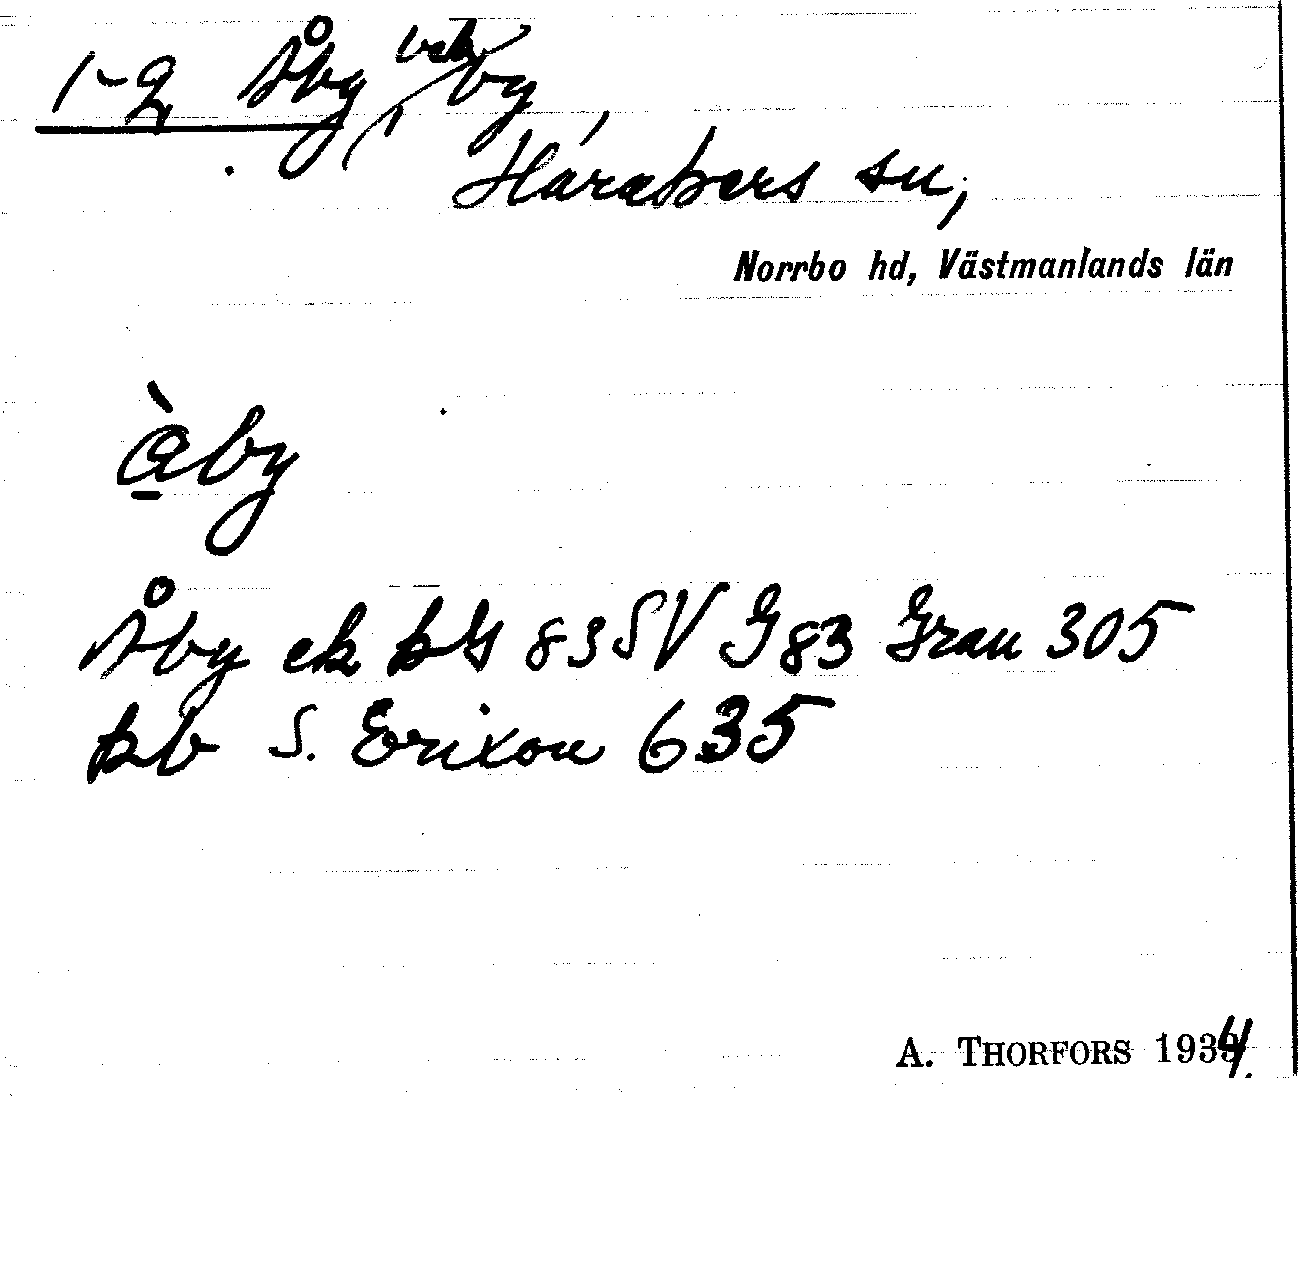 1-2 Åby och by,
Harakers sn,
Norrbo hd, Västmanlands län
àby
Åby ek bl 83 SV G 83 Grau 305
kb S. Erixon 635
A. THORFORS 1934.